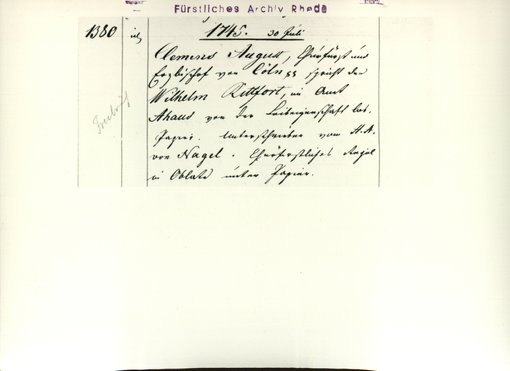 Fürstliches Archiv Rhede
1380
1745. 30 Juli
Clemens August, Churfürst und
Erzbischof von Cöln pp spricht den
Wilhelm Rettfort, im Amt
Ahaus von der Leibeigenschaft los.
Papier. Unterschrieben vom
von Nagel. Churfürstliches Siegel
in Oblate unter Papier.